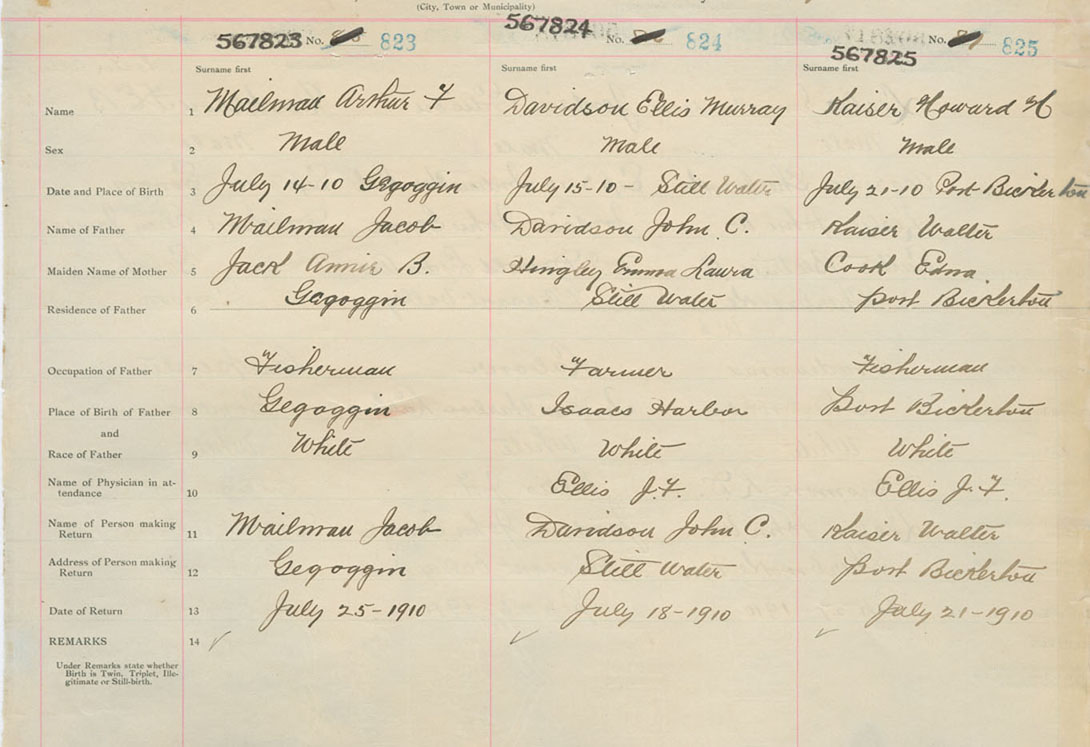 (City, Town or Municipality)
567823 No. 823 567824 No. 824 567825 No. 825
Surname first Surname first Surname first
Name 1 Mailman Arthur F Davidson Ellis Murray Kaiser Howard H
Sex 2 Male Male Male
Date and Place of Birth 3 July 14-10 Gegoggin July 15-10 - Still Water July 21-10 Port Bickerton
Name of Father 4 Mailman Jacob Davidson John C. Kaiser Walter
Maiden Name of Mother 5 Jack Annie B. Hingley Emma Laura Cook Edna
Residence of Father 6 Gegoggin Still Water Port Bickerton
Occupation of Father 7 Fisherman Farmer Fisherman
Place of Birth of Father 8 Gegoggin Isaacs Harbor Port Bickerton
and
Race of Father 9 White White White
Name of Physician in at-
tendance 10 Ellis J.F. Ellis J.F.
Name of Person making
Return 11 Mailman Jacob Davidson John C. Kaiser Walter
Address of Person making
Return 12 Gegoggin Still Water Port Bickerton
Date of Return 13 July 25-1910 July 18-1910 July 21-1910
REMARKS 14
Under Remarks state whether
Birth is Twin, Triplet, Ille-
gitimate or Still-birth.